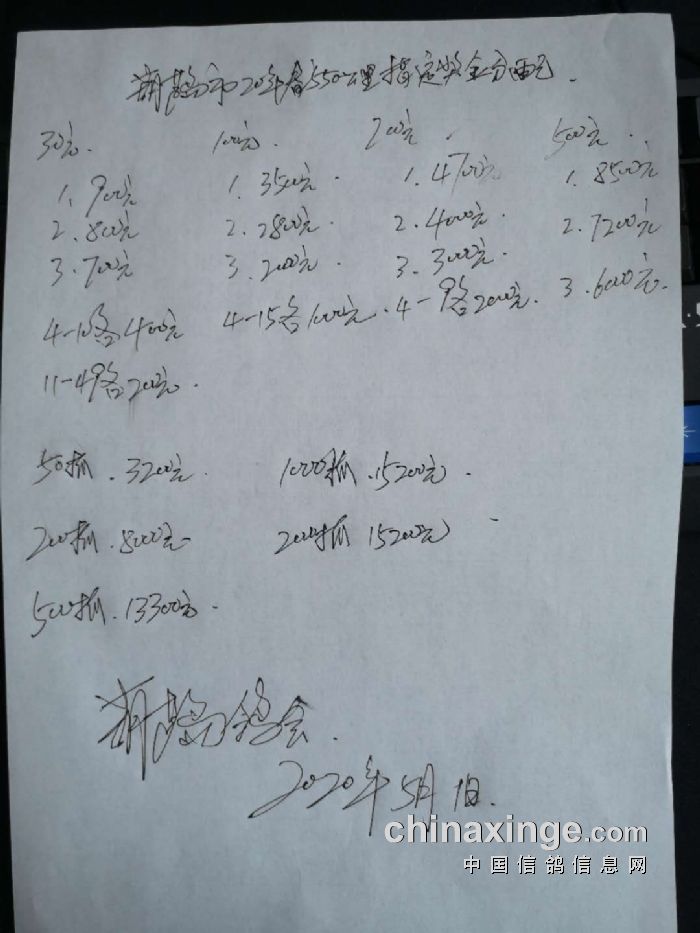 市20年春550公里指定奖金分配.
30元. 100元. 200元. 500元.
1. 900元 1. 3500元. 1. 4700元 1. 8500元
2. 800元 2. 2800元. 2. 4000元. 2. 7200元.
3. 700元 3. 2000元. 3. 3000元. 3. 6000元.
4-10各400元 4-15各1000元. 4-9各2000元.
11-49各200元.
50抓. 3200元. 1000抓. 15200元.
200抓. 8000元 2000抓 15200元
500抓. 13300元.
鸽会.
2020年5月1日.
chinaxinge.com
中国信鸽信息网